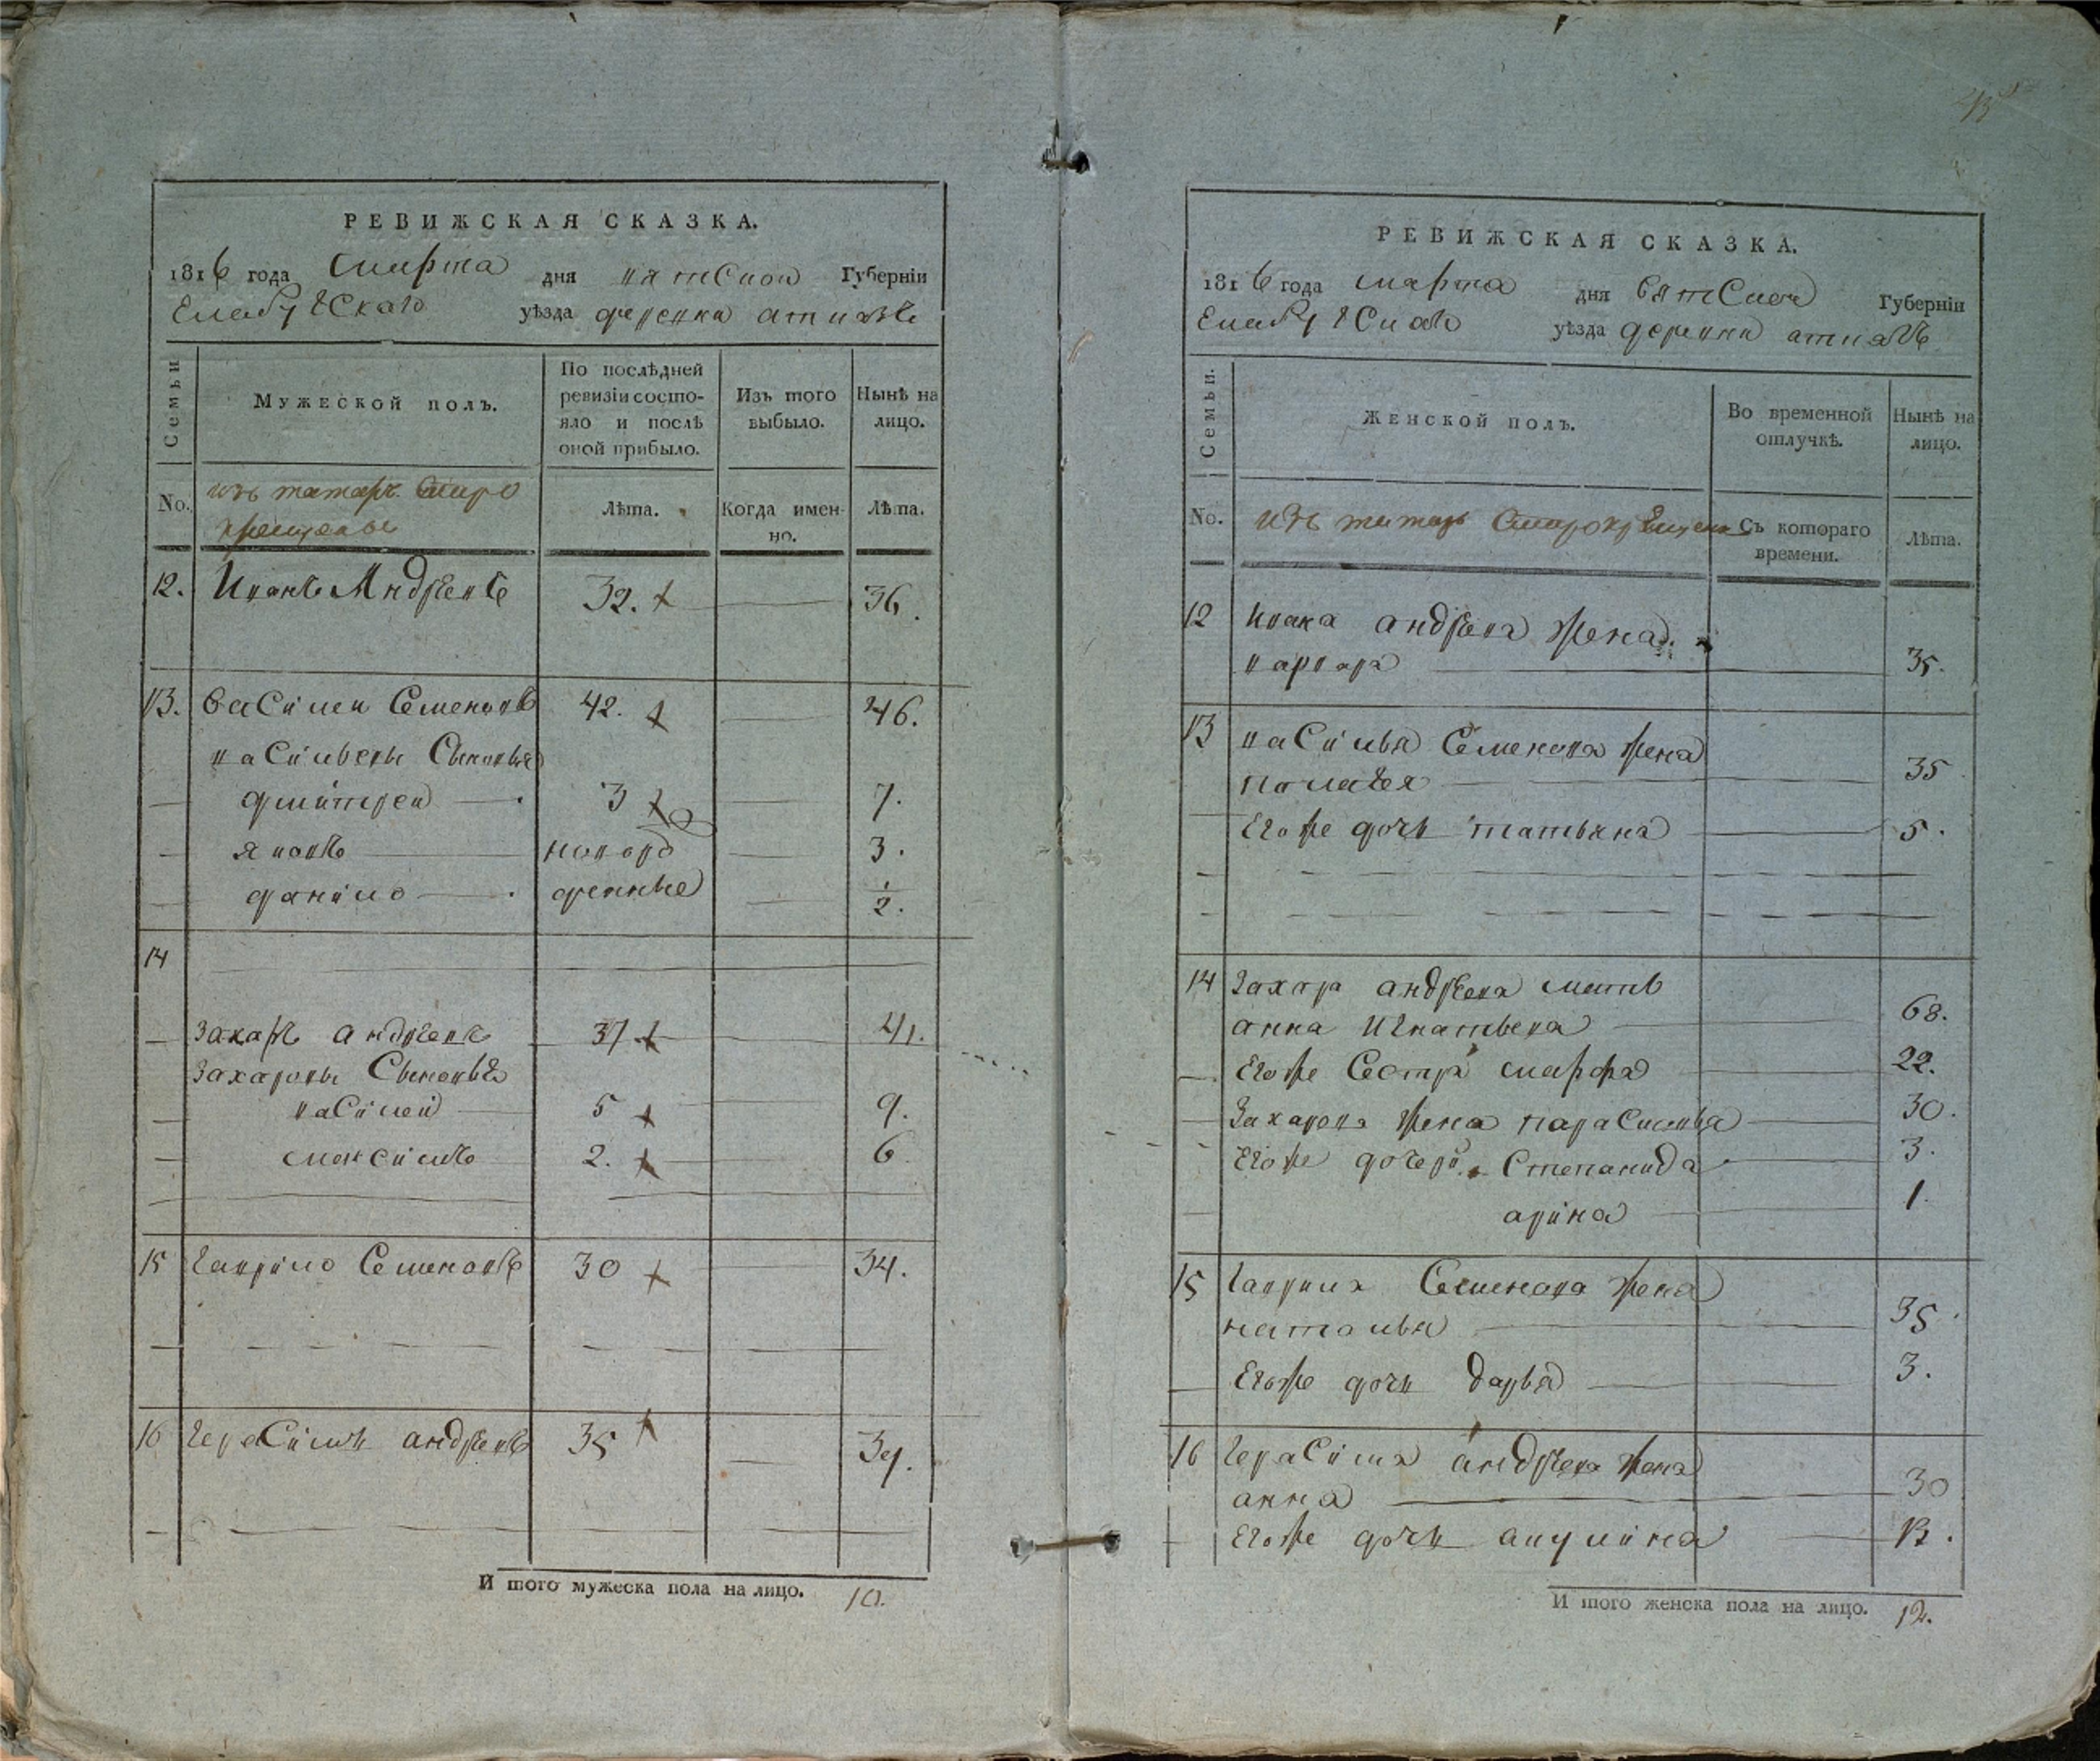 РЕВИЖСКАЯ СКАЗКА.
1816 года марта дня вятской Губерніи
Елабугскаго уѣзда деревни атиазъ
Семьи
Мужеской полъ.
По послѣдней ревизіи состояло и послѣ оной прибыло.
Изъ того выбыло.
Нынѣ на лицо.
No.
изъ татаръ старо
крещеных
Лѣта.
Когда именно.
Лѣта.
12. Иванъ Андреевъ 32. 36.
13. Василеи Семеновъ 42. 46.
васильевы Сыновья
дмитреи 3 7.
яковъ новорож 3.
данило денные 1/2.
14
Захаръ андреевъ 37. 41.
Захаровы Сыновья
василеи 5 9.
максимъ 2. 6
15 гаврило Семеновъ 30 34.
16 герасимъ андреевъ 35 39.
И того мужеска пола на лицо. 10.
РЕВИЖСКАЯ СКАЗКА.
1816 года марта дня вятской Губерніи
Елабугскаго уѣзда деревни атиазъ
Семьи.
Женской полъ.
Во временной отлучкѣ.
Нынѣ на лицо.
No.
изъ татаръ старокрещеных
Съ котораго времени.
Лѣта.
12 Ивана андреева жена
варвара 35.
13 василья Семенова жена
палагея 35
Егоже дочь татьяна 5.
14 Захара андреева мать
анна Игнатьева 68.
Егоже Сестра марфа 22.
Захарова жена парасковья 30.
Егоже дочери Степанида 3.
арина 1.
15 гаврила Семенова жена
наталья 35
Егоже дочь дарья 3.
16 герасима андреева жена
анна 30
Егоже дочь акулина 13.
И того женска пола на лицо. 12.